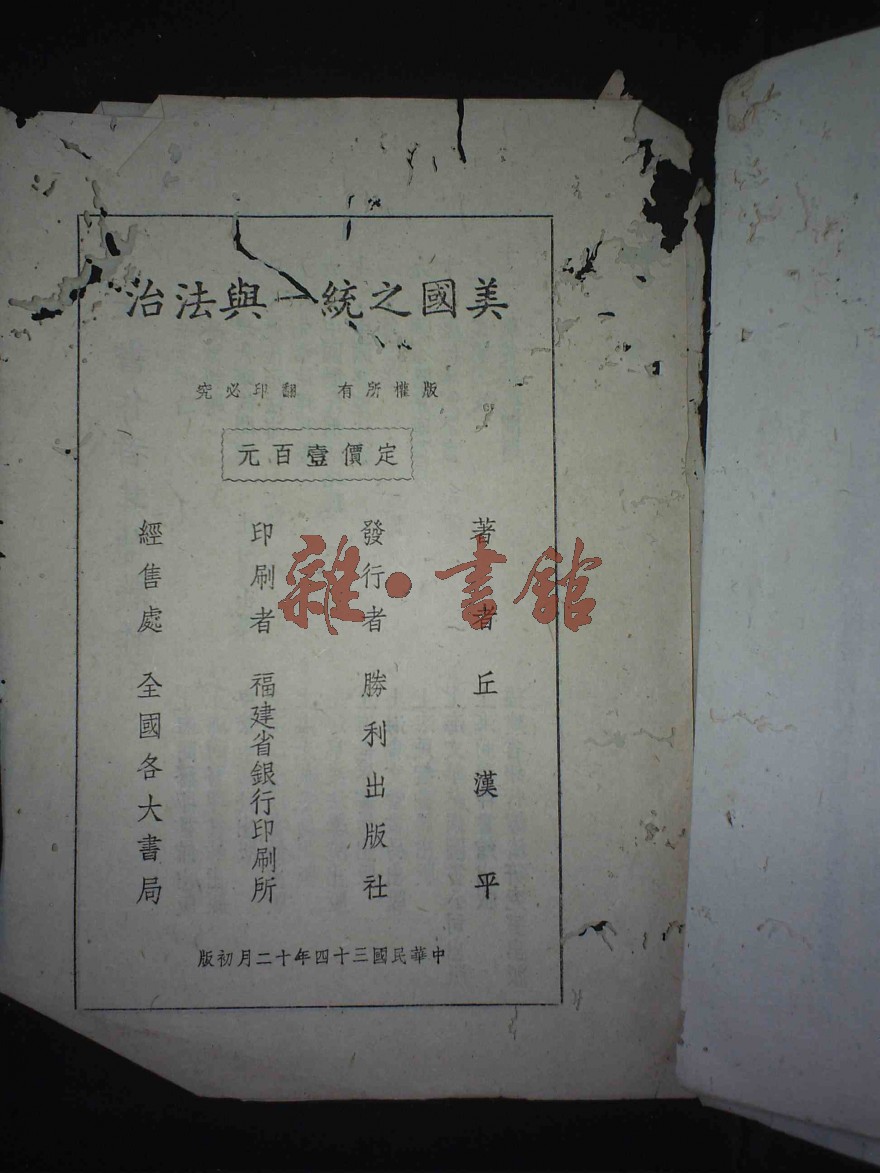 美國之統一與法治
版權所有 翻印必究
定價壹百元
著者 丘漢平
發行者 勝利出版社
印刷者 福建省銀行印刷所
經售處 全國各大書局
中華民國三十四年十二月初版
雜·書館